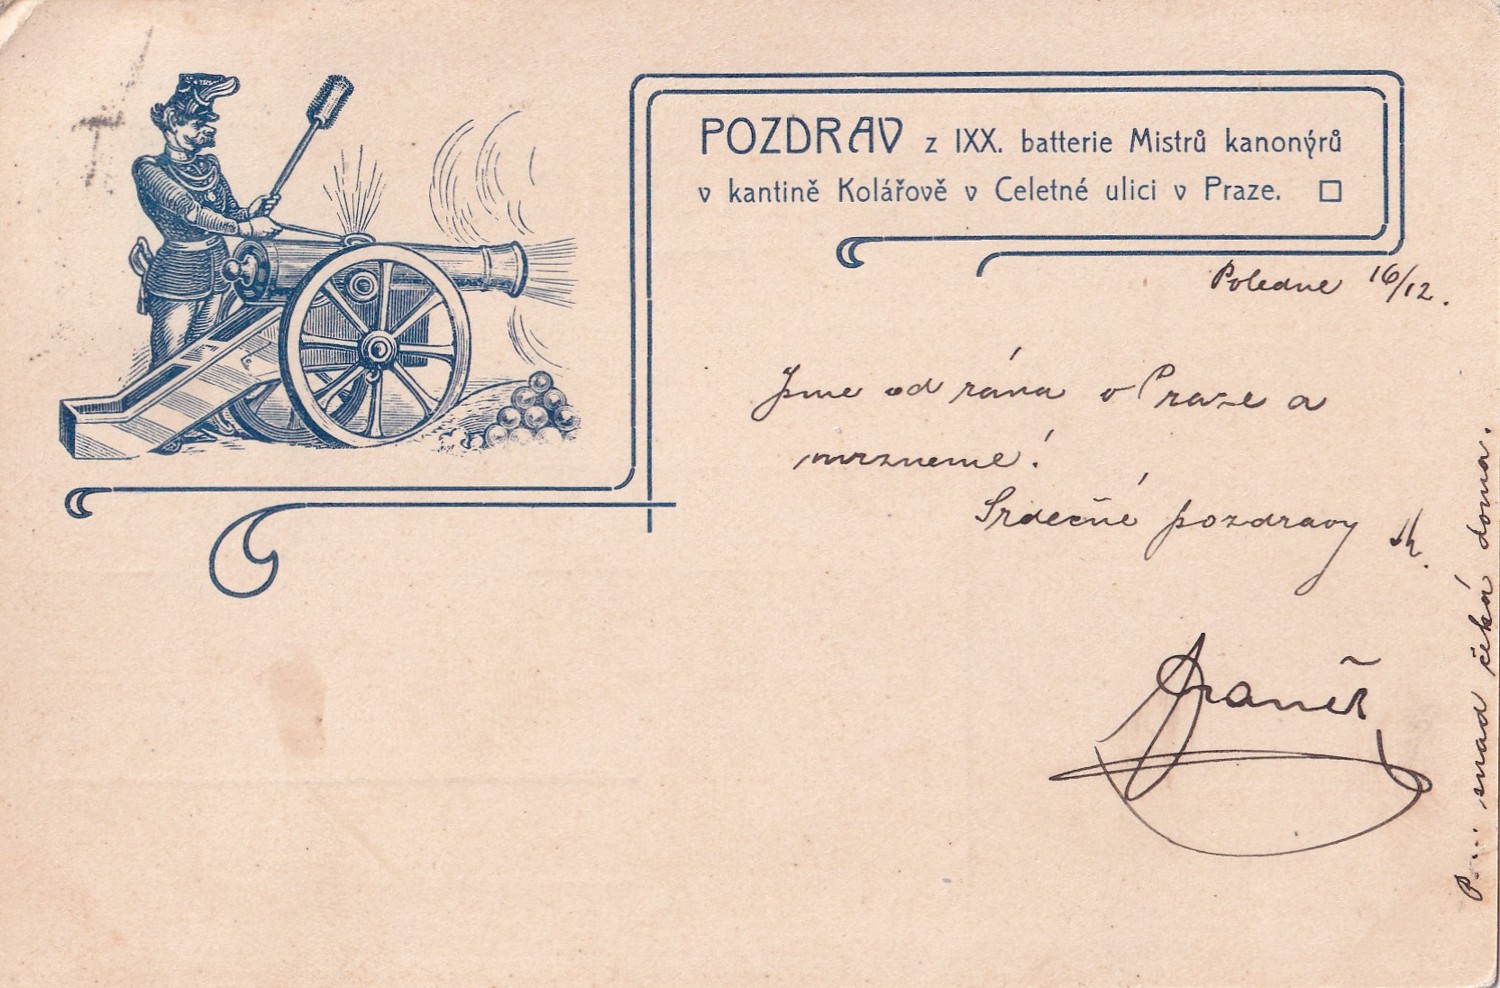 POZDRAV z IXX. batterie Mistrů kanonýrů
v kantině Kolářově v Celetné ulici v Praze.
Poledne 16/12.
Jsme od rána v Praze a
mrzneme!
Srdečné pozdravy
snad čeká doma.